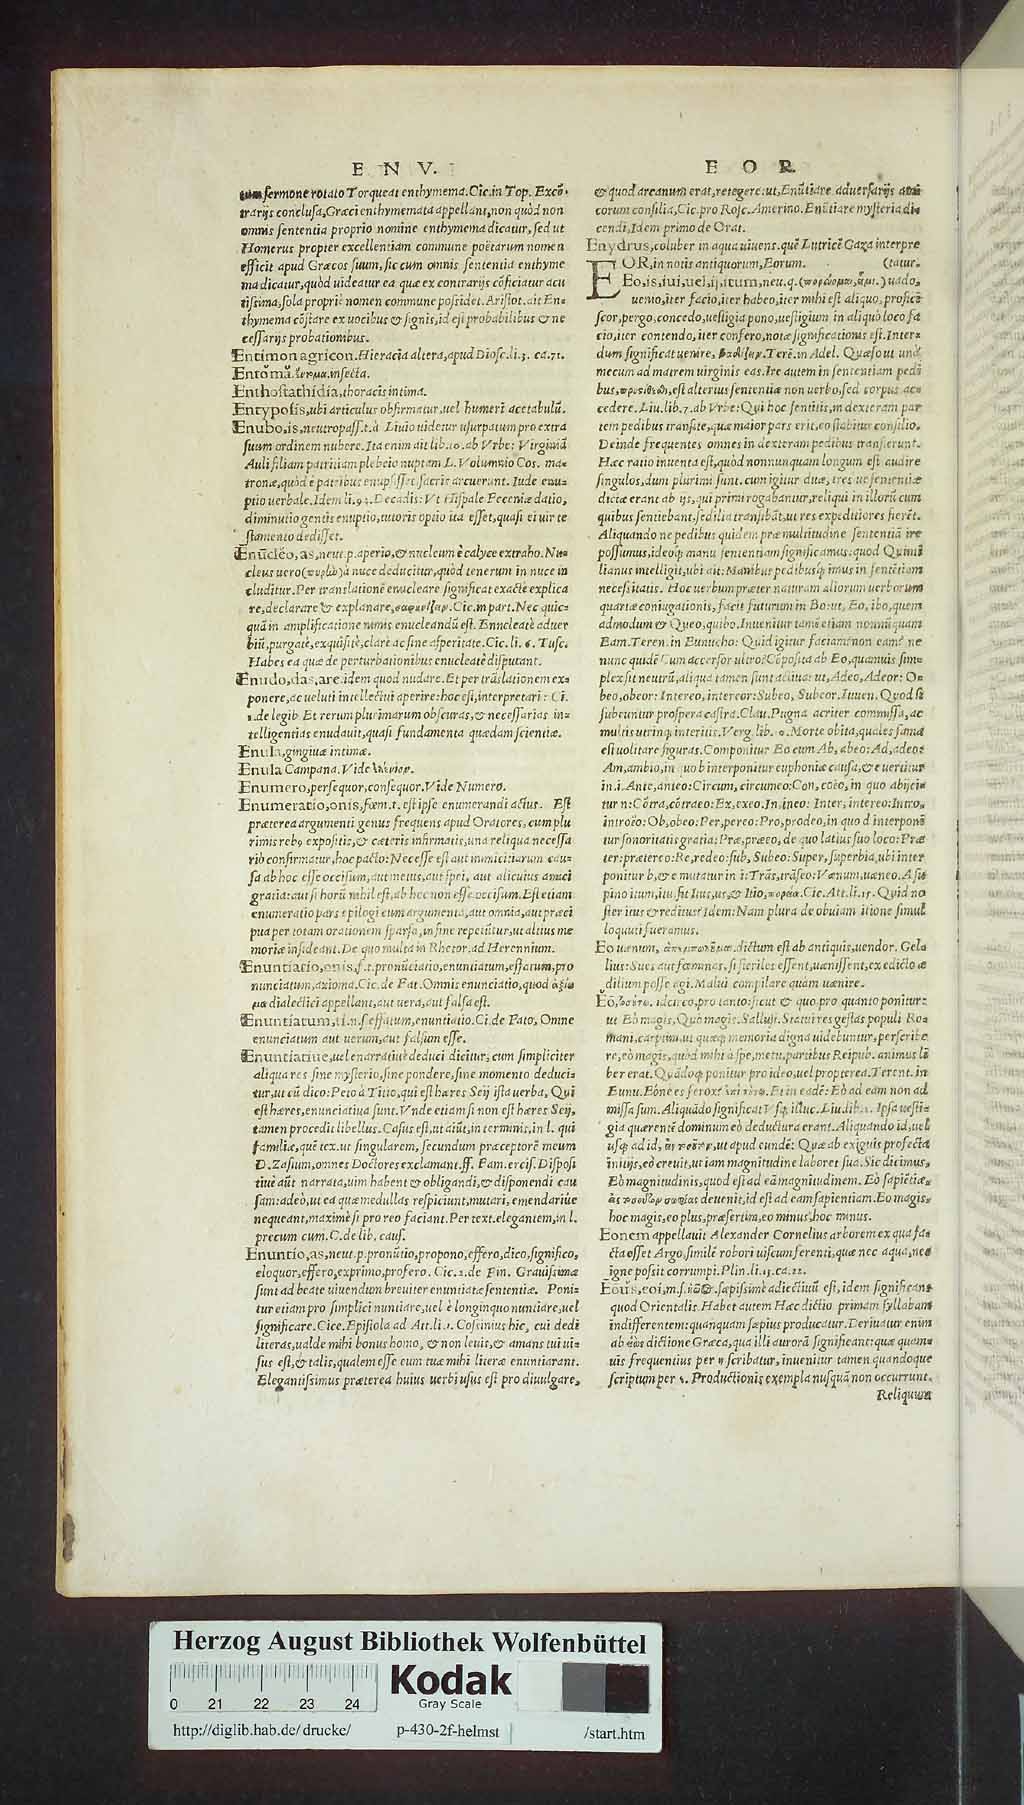 E N V.
tum sermone rotato Torqueat enthymema. Cic. in Top. Excō-
trarijs conclusa, Græci enthymemata appellant, non quòd non
omnis sententia proprio nomine enthymema dicatur, sed ut
Homerus propter excellentiam commune poëtarum nomen
efficit apud Græcos suum, sic cum omnis sententia enthyme
ma dicatur, quòd uideatur ea quæ ex contrarijs cōficiatur acu
tissima, sola propriè nomen commune possidet. Aristot. ait En-
thymema cōstare ex uocibus & signis, id est probabilibus & ne
cessarijs probationibus.
Entimon agricon. Hieracia altera, apud Diosc. li. 3. ca. 71.
Entomă, ἔντομα. insecta.
Enthostathidia, thoracis intima.
Entyposis, ubi articulus obfirmatur, uel humeri acetabulū.
Enubo, is, neutropass. t. à Liuio uidetur usurpatum pro extra
suum ordinem nubere. Ita enim ait lib. 10. ab Vrbe: Virginiā
Auli filiam patritiam plebeio nuptam L. Volumnio Cos. ma-
tronæ, quòd è patribus enupsisset sacris arcuerunt. Inde enu-
ptio uerbale. Idem li. 9. 4. Decadis: Vt Hispale Feceniæ datio,
diminutio gentis enuptio, tutoris optio ita esset, quasi ei uir te
stamento dedisset.
Enūclĕo, as, neut. p. aperio, & nucleum è calyce extraho. Nu-
cleus uero à nuce deducitur, quòd tenerum in nuce in
cluditur. Per translationē enucleare significat exactè explica
re, declarare & explanare, σαφηνίζειν. Cic. in part. Nec quic-
quā in amplificatione nimis enucleandū est. Enucleatè aduer
biū, purgatè, exquisitè, clarè ac sine asperitate. Cic. li. 6. Tusc.
Habes ea quæ de perturbationibus enucleatè disputant.
Enudo, das, are. idem quod nudare. Et per trāslationem ex-
ponere, ac ueluti intellectui aperire: hoc est, interpretari: Ci.
1. de legib. Et rerum plurimarum obscuras, & necessarias in-
telligentias enudauit, quasi fundamenta quædam scientiæ.
Enula, gingiuæ intimæ.
Enula Campana. Vide
Enumero, persequor, consequor. Vide Numero.
Enumeratio, onis, fœm. t. est ipse enumerandi actus. Est
præterea argumenti genus frequens apud Oratores, cum plu
rimis rebꝰ expositis, & cæteris infirmatis, una reliqua necessa
riò confirmatur, hoc pacto: Necesse est aut inimicitiarum cau-
sa ab hoc esse occisum, aut metus, aut spei, aut alicuius amici
gratia: aut si horū nihil est, ab hoc non esse occisum. Est etiam
enumeratio pars epilogi cum argumenta, aut omnia, aut præci
pua per totam orationem sparsa, in fine repetūtur, ut altius me
moriæ insideant. De quo multa in Rhetor. ad Herennium.
Enuntiatio, onis, f. t. pronūciatio, enuntiatum, effatum, pro
nunciatum, axioma. Cic. de Fat. Omnis enunciatio, quod ἀξίω
μα dialectici appellant, aut uera, aut falsa est.
Enuntiatum, ti. n. s. effatum, enuntiatio. Ci. de Fato, Omne
enunciatum aut uerum, aut falsum esse.
Enuntiatiue, uel enarratiuè deduci dicitur: cum simpliciter
aliqua res sine mysterio, sine pondere, sine momento deduci-
tur, ut cū dico: Peto à Titio, qui est hæres Seij ista uerba, Qui
est hæres, enunciatiua sunt. Vnde etiam si non est hæres Seij,
tamen procedit libellus. Casus est, ut aiūt, in terminis, in l. qui
familiæ, quē tex. ut singularem, secundum præceptorē meum
D. Zasium, omnes Doctores exclamant. ff. Fam. ercis. Disposi
tiuè aūt narrata, uim habent & obligandi, & disponendi cau
sam: adeò, ut ea quæ medullas respiciunt, mutari, emendariúe
nequeant, maximè si pro reo faciant. Per text. elegantem, in l.
precum cum. C. de lib. caus.
Enuntio, as, neut. p. pronūtio, propono, effero, dico, significo,
eloquor, effero, exprimo, profero. Cic. 2. de Fin. Grauissimæ
sunt ad beate uiuendum breuiter enuntiatæ sententiæ. Poni-
tur etiam pro simplici nuntiare, uel è longinquo nuntiare, uel
significare. Cice. Epistola ad Att. li. 1. Cossinius hic, cui dedi
literas, ualde mihi bonus homo, & non leuis, & amans tui ui-
sus est, & talis, qualem esse eum tuæ mihi literæ enuntiarant.
Elegantissimus præterea huius uerbi usus est pro diuulgare,
E O R.
& quod arcanum erat, retegere: ut, Enūtiare aduersarijs ami
corum consilia, Cic. pro Rosc. Amerino. Enūtiare mysteria di-
cendi, Idem primo de Orat.
Enydrus, coluber in aqua uiuens. quē Lutricē Gaza interpre
(tatur.
EOR, in notis antiquorum, Eorum.
Eo, is, iui, uel, ij, itum, neu. q. uado,
uenio, iter facio, iter habeo, iter mihi est aliquo, profici
scor, pergo, concedo, uestigia pono, uestigium in aliquò loco fa
cio, iter contendo, iter confero, notæ significationis est. Inter-
dum significat uenire, βαδίζειν. Terē. in Adel. Quæso ut unà
mecum ad matrem uirginis eas. Ire autem in sententiam pedi
bus, est alterius sententiæ non uerbo, sed corpus ac-
cedere. Liu. lib. 7. ab Vrbe: Qui hoc sentitis, in dexteram par
tem pedibus transite, quæ maior pars erit, eo stabitur consilio.
Deinde frequentes omnes in dexteram pedibus transierunt.
Hæc ratio inuenta est, quòd nonnunquam longum est audire
singulos, dum plurimi sunt. cum igitur duæ, tres ue sententiæ
dictæ erant ab ijs, qui primi rogabantur, reliqui in illorū cum
quibus sentiebant, sedilia transibāt, ut res expeditiores fierēt.
Aliquando ne pedibus quidem præ multitudine sententiā ire
possumus, ideoq́; manu sententiam significamus: quod Quinti
lianus intelligit, ubi ait: Manibus pedibusq́; imus in sentētiam
necessitatis. Hoc uerbum præter naturam aliorum uerborum
quartæ coniugationis, facit futurum in Bo: ut, Eo, ibo, quem
admodum & Queo, quibo. Inuenitur tamē etiam nonnūquam
Eam. Teren. in Eunucho: Quid igitur faciam? non eam? ne
nunc quidē? Cum accersor ultro? Cōposita ab Eo, quamuis sim-
plex sit neutrū, aliqua tamen sunt actiua: ut, Adeo, Adeor: O-
beo, obeor: Intereo, intereor: Subeo, Subeor. Iuuen. Quod si
subeuntur prospera castra. Clau. Pugna acriter commissa, ac
multis utrinq; interitis. Verg. lib. 10. Morte obita, quales fama
est uolitare figuras. Componitur Eo cum Ab, abeo: Ad, adeo:
Am, ambio, in quo b interponitur euphoniæ causa, & e uertitur
in i. Ante, anteo: Circum, circumeo: Con, coëo, in quo abijci-
tur n: Cōtra, cōtraeo: Ex, exeo. In, ineo: Inter, intereo: Intro,
introëo: Ob, obeo: Per, pereo: Pro, prodeo, in quo d interponi
tur sonoritatis gratia: Præ, præeo, de quo latius suo loco: Præ
ter: prætereo: Re, redeo: sub, Subeo: Super, superbia, ubi inter
ponitur b, & e mutatur in i: Trās, trāseo: Vænum, uæneo. A su
pino itum, itu, fit Itus, us, & Itio, πορεία. Cic. Att. li. 15. Quid no
ster itus & reditus? Idem: Nam plura de obuiam itione simul
loquuti fueramus.
Eo uænum, dictum est ab antiquis, uendor. Gel-
lius: Sues aut fœminas, si steriles essent, uænissent, ex edicto æ
dilium posse agi. Malui compilare quàm uænire.
Eō, idcirco, pro tanto: sicut & quo pro quanto ponitur:
ut Eò magis, Quò magis. Sallust. Statui res gestas populi Ro-
mani, carptim, ut quæq; memoria digna uidebuntur, perscribe
re, eò magis, quòd mihi à spe, metu, partibus Reipub. animus li
ber erat. Quādoq́; ponitur pro ideo, uel propterea. Terent. in
Eunu. Eóne es ferox? Et in eadē: Eò ad eam non ad
missa sum. Aliquādo significat Vsq; illuc. Liu. lib. 1. Ipsa uesti-
gia quærentē dominum eò deductura erant. Aliquando id, uel
usq; ad id, ut apud eundē: Quæ ab exiguis profecta
initijs, eò creuit, ut iam magnitudine laboret sua. Sic dicimus,
Eò magnitudinis, quod est ad eā magnitudinem. Eò sapiētiæ,
deuenit, id est ad eam sapientiam. Eo magis,
hoc magis, eo plus, præsertim, eo minus, hoc minus.
Eonem appellauit Alexander Cornelius arborem ex qua fa-
cta esset Argo, similē robori uiscum ferenti, quæ nec aqua, nec
igne possit corrumpi. Plin. li. 13. ca. 22.
Eōus, eoi, m. s. sæpissimè adiectiuū est, idem significans
quod Orientalis. Habet autem Hæc dictio primam syllabam
indifferentem: quanquam sæpius producatur. Deriuatur enim
ab dictione Græca, quæ illi aurorā significant: quæ quam-
uis frequentius per η scribatur, inuenitur tamen quandoque
scriptum per ε. Productionis exempla nusquā non occurrunt.
Reliquum
Herzog August Bibliothek Wolfenbüttel
Kodak
Gray Scale
0 21 22 23 24
http://diglib.hab.de/drucke/ p-430-2f-helmst /start.htm